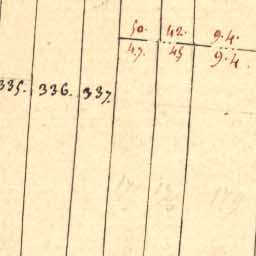 50. 42. 9.4.
47. 45 9.4.
335. 336. 337.